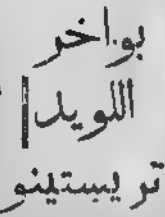 بواخر
اللويد
تريستينو